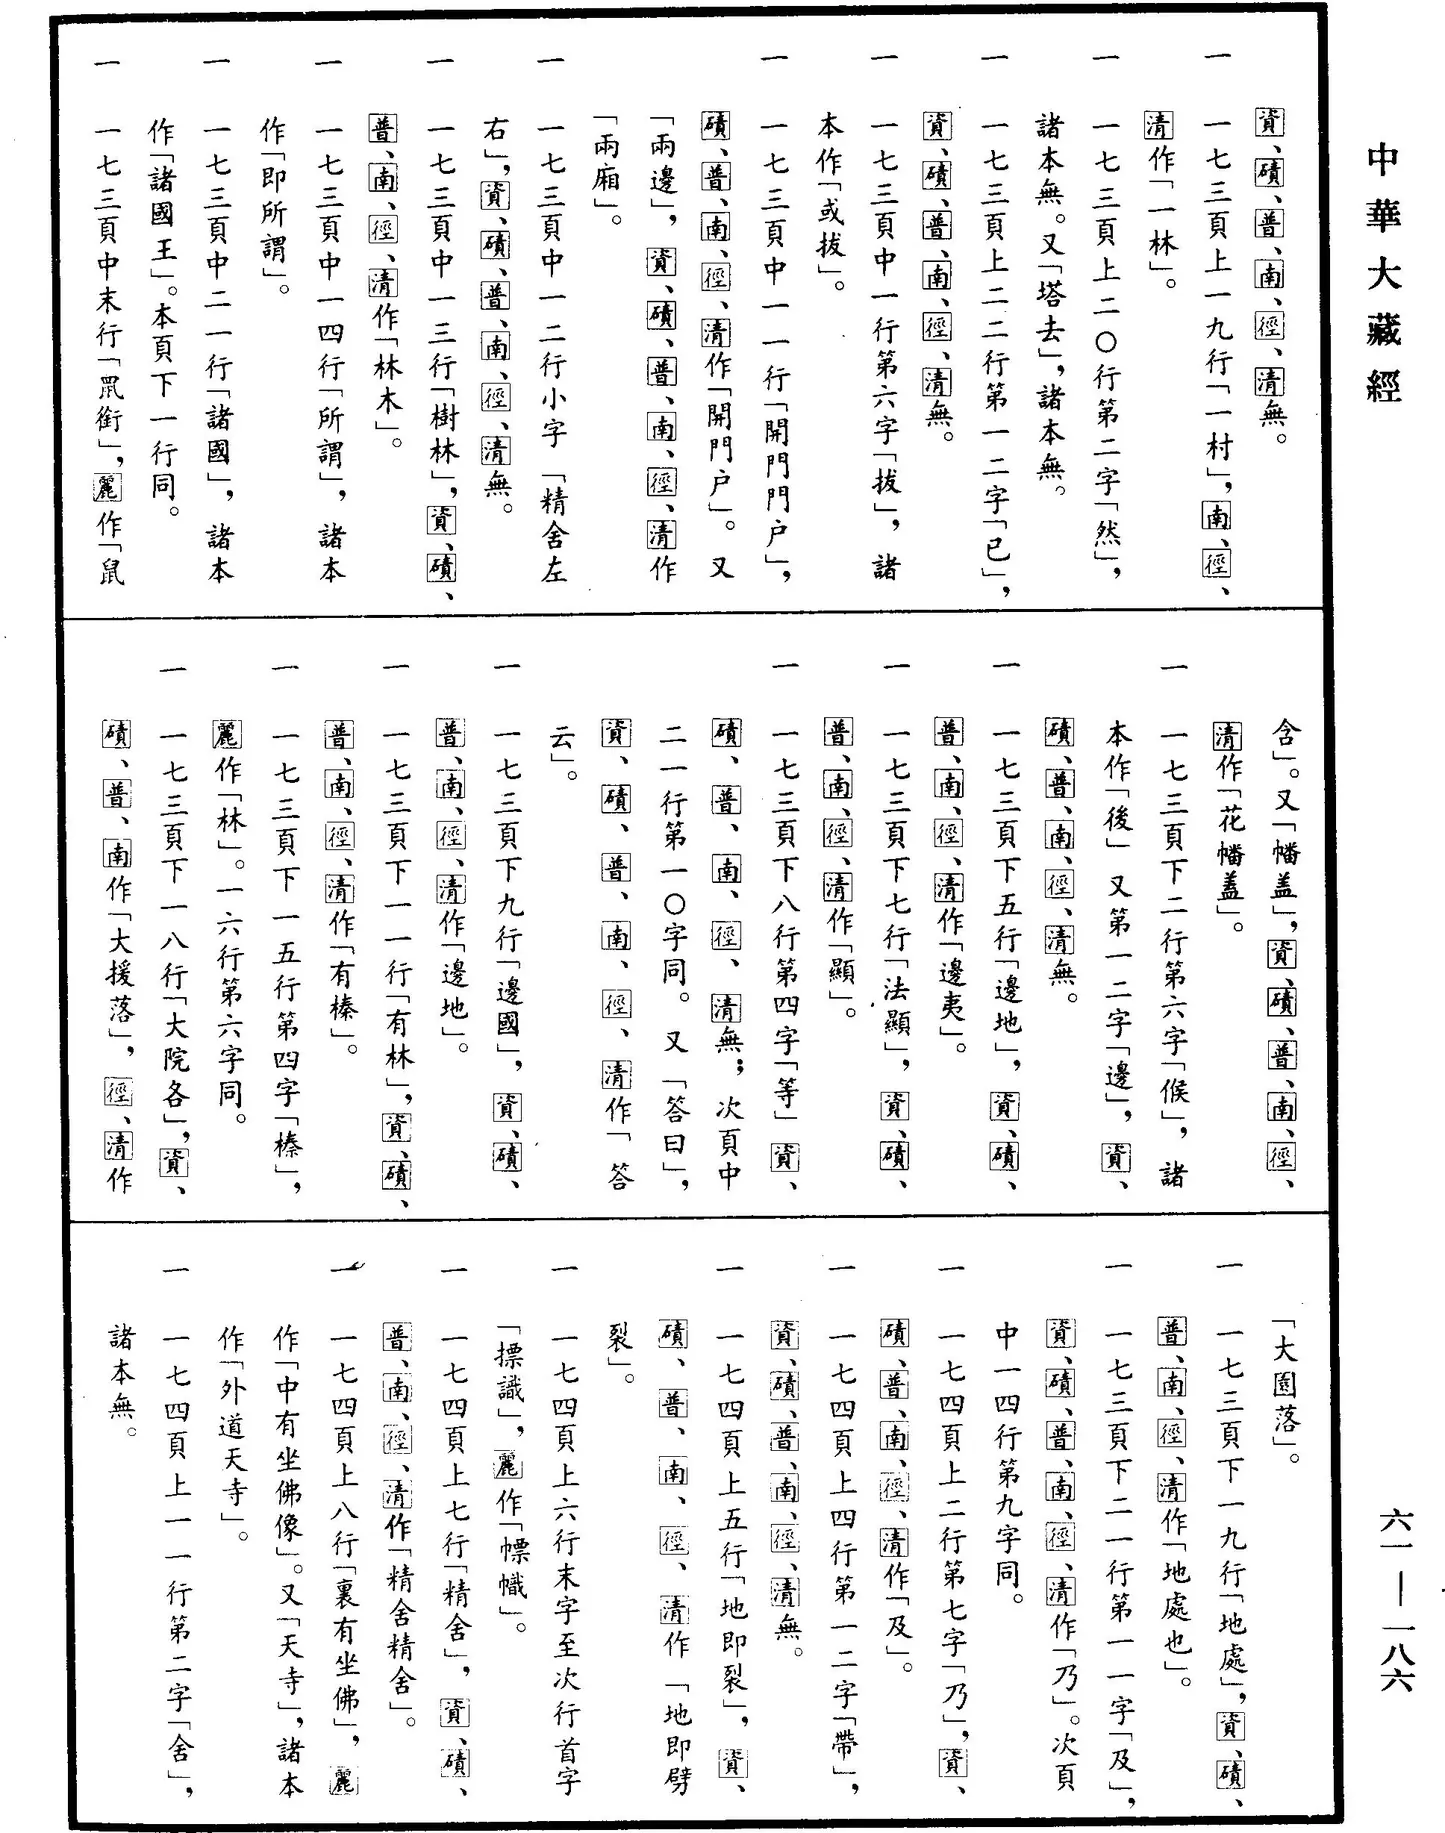 中華大藏經
資、磧、普、南、徑、清無。
一 一七三頁上一九行「一村」，南、徑、
清作「一林」。
一 一七三頁上二〇行第二字「然」，
諸本無。又「塔去」，諸本無。
一 一七三頁上二二行第一二字「已」，
資、磧、普、南、徑、清無。
一 一七三頁中一行第六字「拔」，諸
本作「或拔」。
一 一七三頁中一一行「開門門户」，
磧、普、南、徑、清作「開門户」。又
「兩邊」，資、磧、普、南、徑、清作
「兩廂」。
一 一七三頁中一二行小字「精舍左
右」，資、磧、普、南、徑、清無。
一 一七三頁中一三行「樹林」，資、磧、
普、南、徑、清作「林木」。
一 一七三頁中一四行「所謂」，諸本
作「即所謂」。
一 一七三頁中二一行「諸國」，諸本
作「諸國王」。本頁下一行同。
一 一七三頁中末行「鼠銜」，麗作「鼠
含」。又「幡盖」，資、磧、普、南、徑、
清作「花幡蓋」。
一 一七三頁下二行第六字「候」，諸
本作「後」又第一二字「邊」，資、
磧、普、南、徑、清無。
一 一七三頁下五行「邊地」，資、磧、
普、南、徑、清作「邊夷」。
一 一七三頁下七行「法顯」，資、磧、
普、南、徑、清作「顯」。
一 一七三頁下八行第四字「等」資、
磧、普、南、徑、清無；次頁中
二一行第一〇字同。又「答曰」，
資、磧、普、南、徑、清作「答
云」。
一 一七三頁下九行「邊國」，資、磧、
普、南、徑、清作「邊地」。
一 一七三頁下一一行「有林」，資、磧、
普、南、徑、清作「有榛」。
一 一七三頁下一五行第四字「榛」，
麗作「林」。一六行第六字同。
一 一七三頁下一八行「大院各」，資、
磧、普、南作「大援落」，徑、清作
「大園落」。
一 一七三頁下一九行「地處」，資、磧、
普、南、徑、清作「地處也」。
一 一七三頁下二一行第一一字「及」，
資、磧、普、南、徑、清作「乃」。次頁
中一四行第九字同。
一 一七四頁上二行第七字「乃」，資、
磧、普、南、徑、清作「及」。
一 一七四頁上四行第一二字「帶」，
資、磧、普、南、徑、清無。
一 一七四頁上五行「地即裂」，資、
磧、普、南、徑、清作「地即劈
裂」。
一 一七四頁上六行末字至次行首字
「摽識」，麗作「幖幟」。
一 一七四頁上七行「精舍」，資、磧、
普、南、徑、清作「精舍精舍」。
一 一七四頁上八行「裏有坐佛」，麗
作「中有坐佛像」。又「天寺」，諸本
作「外道天寺」。
一 一七四頁上一一行第二字「舍」，
諸本無。
六一——一八六